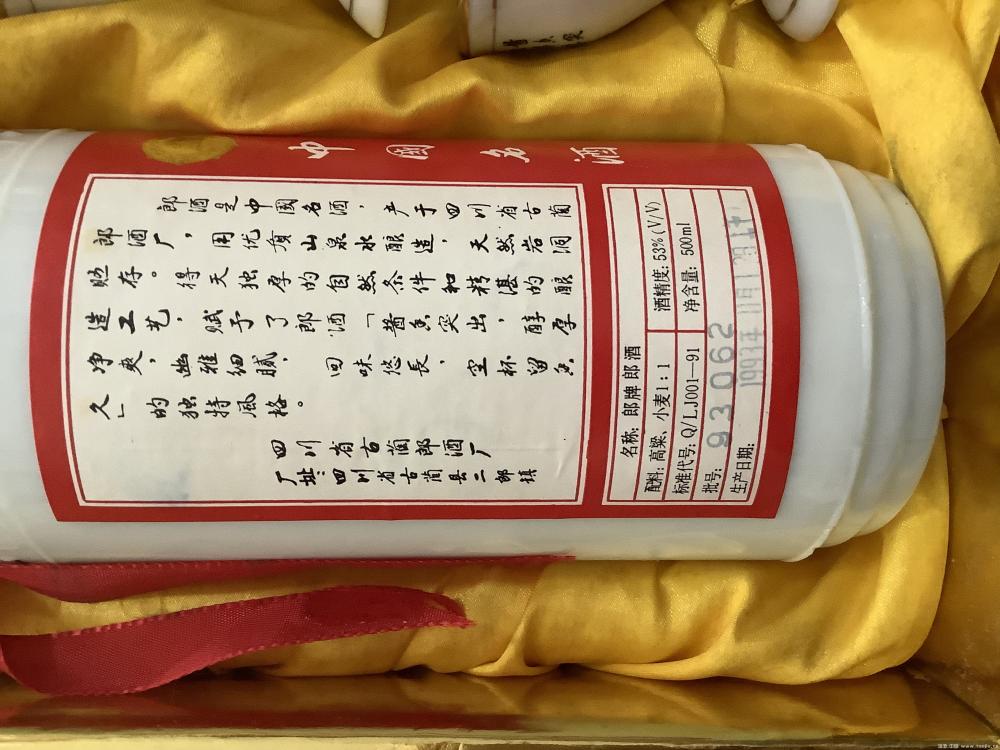 中国名酒
郎酒是中国名酒，产于四川省古蔺
郎酒厂，用优质山泉水酿造，天然岩洞
贮存。得天独厚的自然条件和精湛的酿
造工艺，赋予了郎酒「酱香突出，醇厚
净爽，幽雅细腻，回味悠長，空杯留香
久」的独特風格。
四川省古蔺郎酒厂
厂址：四川省古蔺县二郎镇
名称: 郎牌 郎酒
配料: 高粱、小麦1:1
酒精度: 53%(V/V)
标准代号: Q/LJ001-91
净含量: 500ml
批号: 93 062
生产日期: 1993年11月